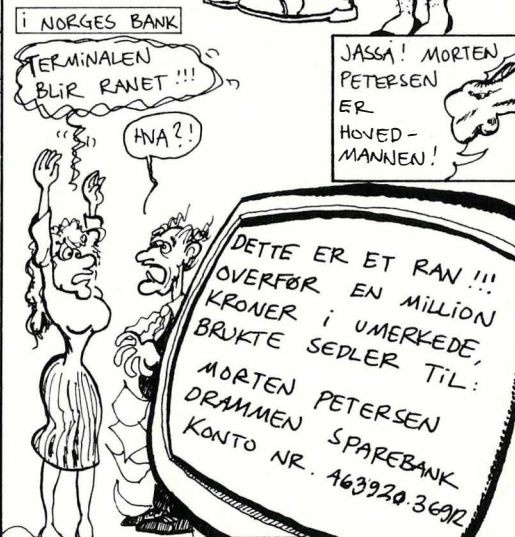 i NORGES BANK
TERMiNALEN
BLiR RANET !!!
HVA?!
JASSÅ! MORTEN
PETERSEN
ER
HOVED-
MANNEN!
DETTE ER ET RAN !!!
OVERFØR EN MiLLiON
KRONER i UMERKEDE,
BRUKTE SEDLER TiL:
MORTEN PETERSEN
DRAMMEN SPAREBANK
KONTO NR. 463920.36912